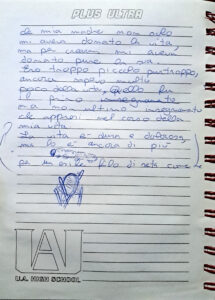 PLUS ULTRA
mia madre non solo
mi aveva donato la vita,
ma per mi aveva
donato pure la sua.
Ero troppo piccolo purtroppo,
ancora
della vita, Quello fu
il primo insegnamento
ma non ultimo insegnamento
che appresi nel corso della
mia vita.
La vita è dura e dolorosa,
ma lo è ancora di più
per un filo di seta come
UA
U.A. HIGH SCHOOL